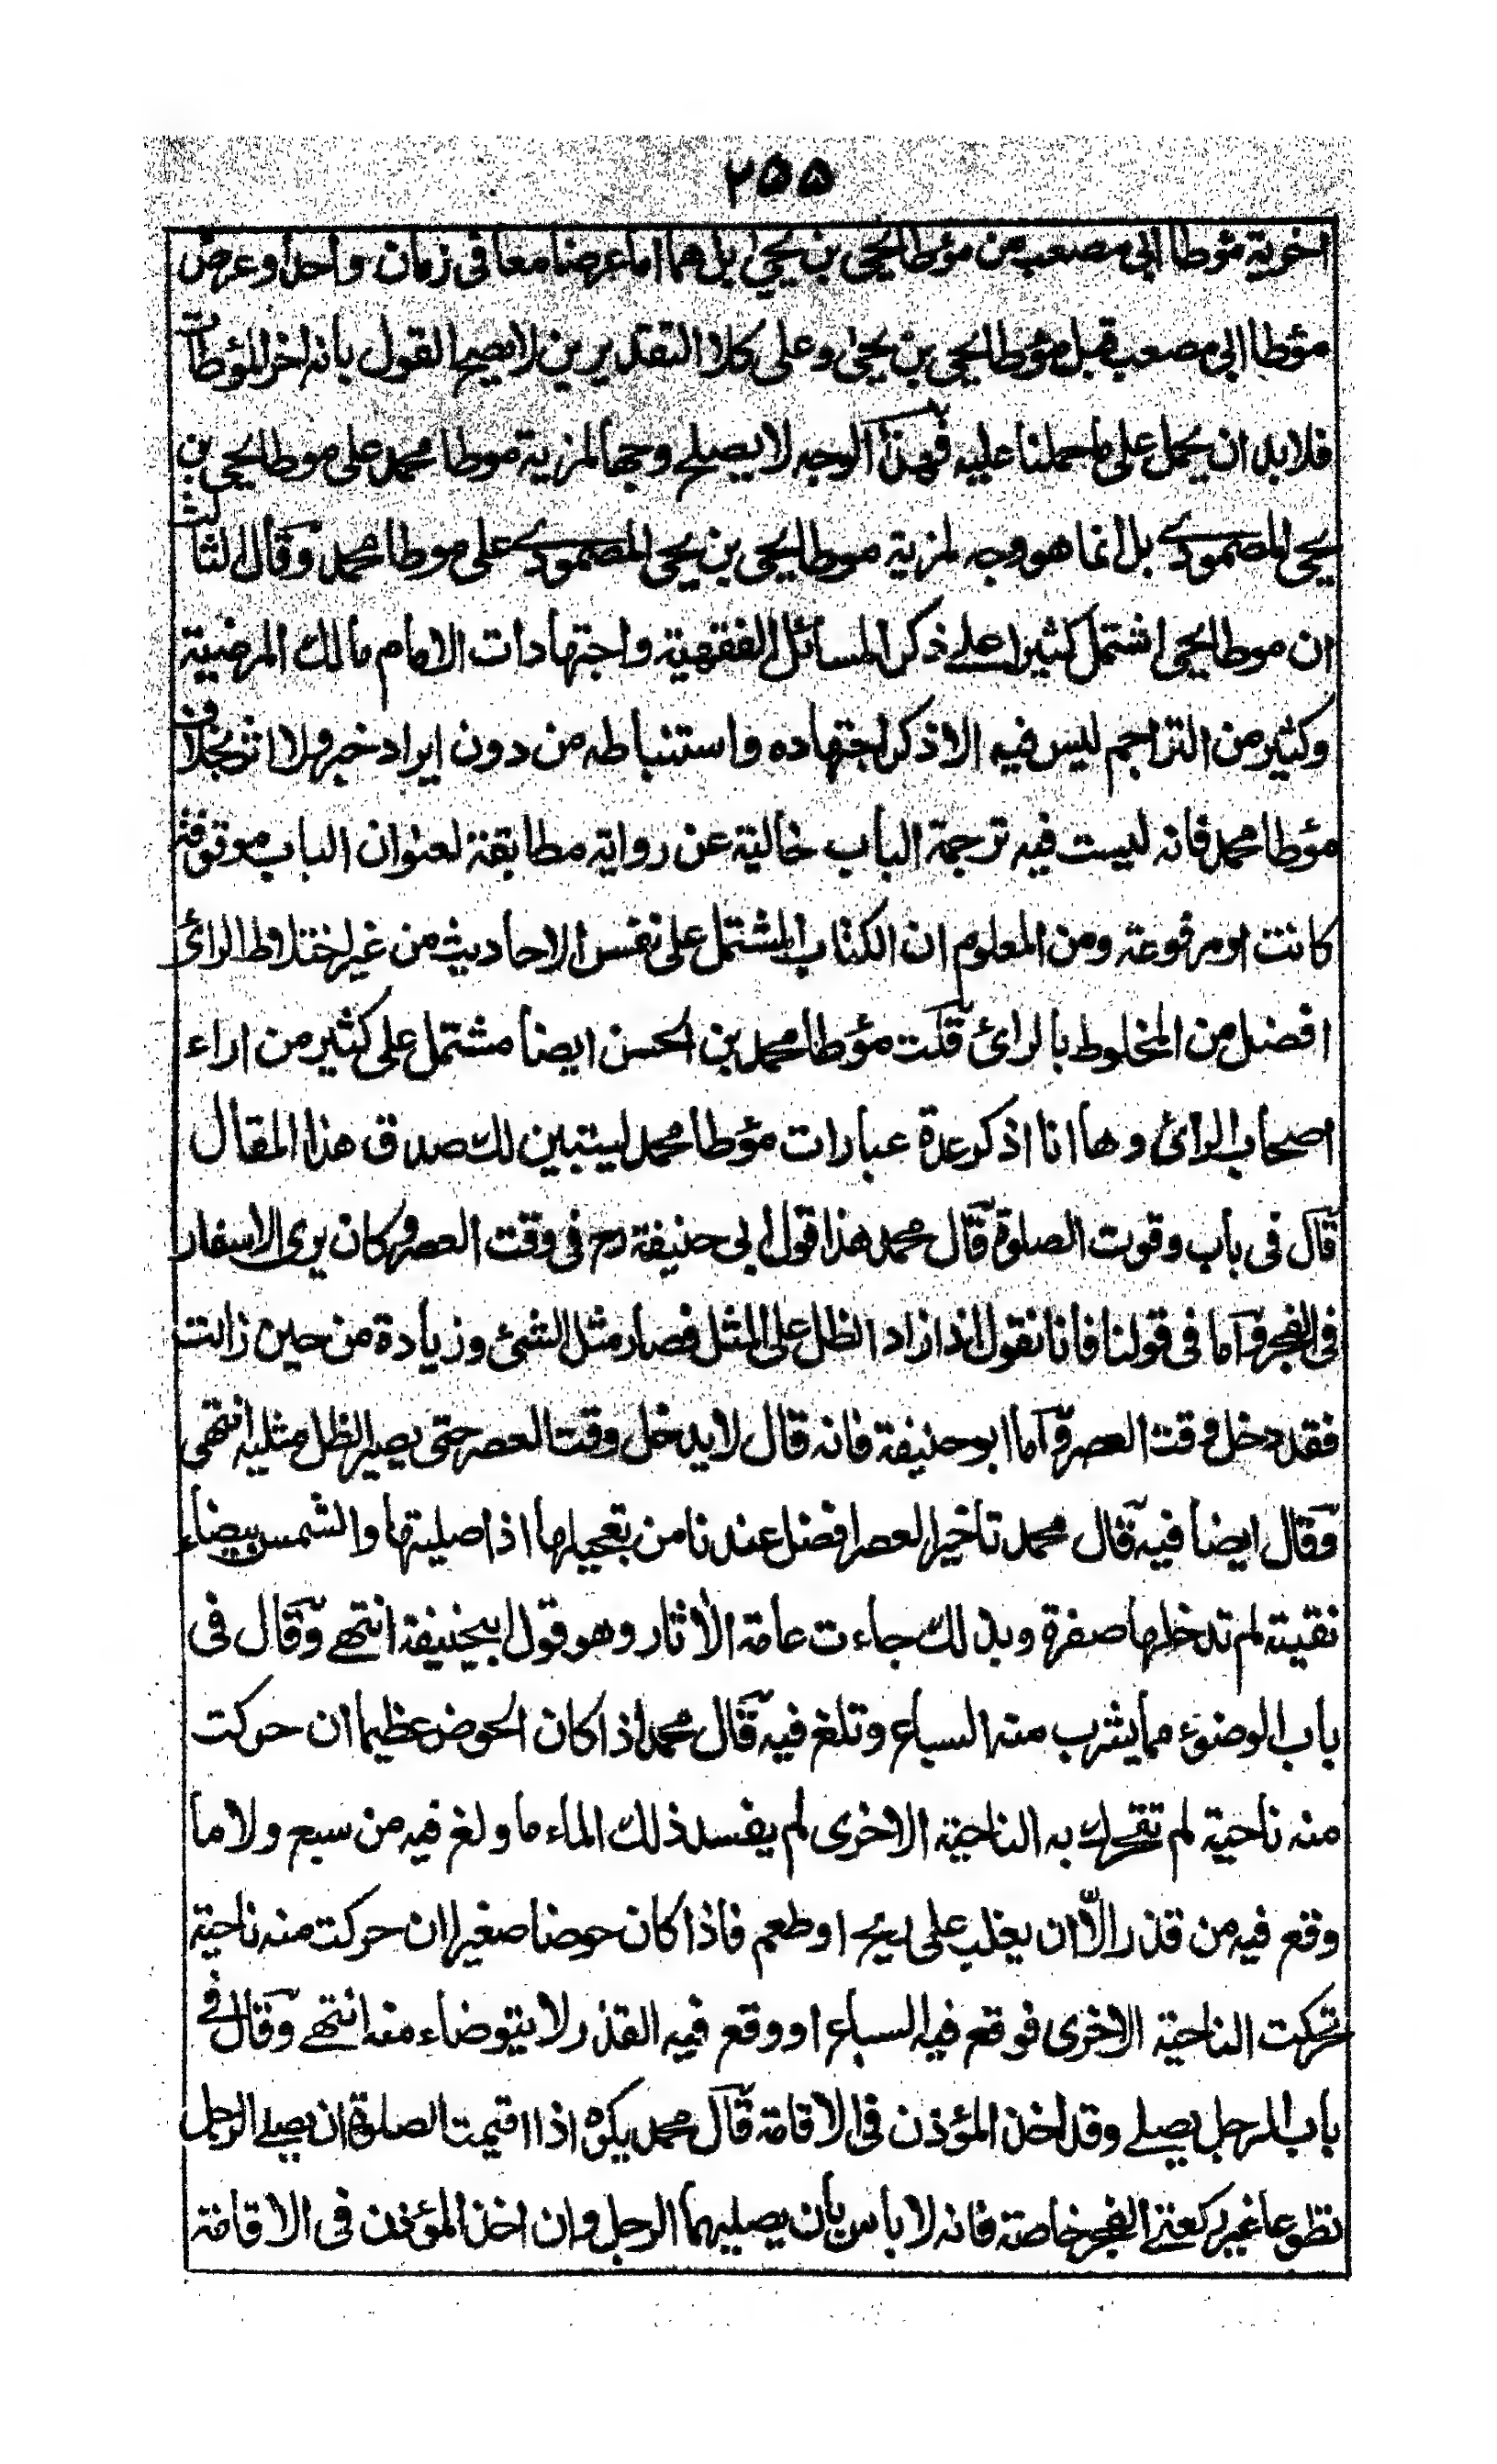 ٢٥٥
اخرية مؤطا ابى مصعب من مؤطا يحيى بن يحيىٰ بل هما اما عرضا معا فى زمان واحد او عرض
مؤطا ابى مصعب قبل مؤطا يحيى بن يحيىٰ وعلى كلا التقديرين لا يصح القول بانه اخر المؤطات
فلا بد ان يحمل على ما حملنا عليه فهذا الوجه لا يصلح وجها لمزية موطا محمد على موطا يحيى بن
يحيى المصمودى بل انما هو وجه لمزية موطا يحيى بن يحيى المصمودى على موطا محمد وقال الثالث
ان موطا يحيى اشتمل كثيرا على ذكر المسائل الفقهية واجتهادات الامام مالك المرضية
وكثير من التراجم ليس فيه الا ذكر اجتهاده واستنباطه من دون ايراد خبر ولا اثر بخلاف
مؤطا محمد فانه ليست فيه ترجمة الباب خالية عن رواية مطابقة لعنوان الباب موقوفة
كانت او مرفوعة ومن المعلوم ان الكتاب المشتمل على نفس الاحاديث من غير اختلاط الرائ
افضل من المخلوط بالرائ قلت مؤطا محمد بن الحسن ايضا مشتمل على كثير من اراء
اصحاب الرائ وها انا اذكر عدة عبارات مؤطا محمد ليتبين لك صدق هذا المقال
قال فى باب وقوت الصلوة قال محمد هذا قول ابى حنيفة رح فى وقت العصر وكان يرى الاسفار
فى الفجر واما فى قولنا فانا نقول اذا زاد الظل على المثل فصار مثل الشئ وزيادة من حين زالت
فقد دخل وقت العصر واما ابو حنيفة فانه قال لا يدخل وقت العصر حتى يصير الظل مثليه انتهى
وقال ايضا فيه قال محمد تاخير العصر افضل عندنا من تعجيلها اذا صليتها والشمس بيضاء
نقية لم تدخلها صفرة وبذلك جاءت عامة الاثار وهو قول ابيحنيفة انتهے وقال فى
باب الوضوء مما يشرب منه السباع وتلغ فيه قال محمد اذا كان الحوض عظيما ان حركت
منه ناحية لم تتحرك به الناحية الاخرى لم يفسد ذلك الماء ما ولغ فيه من سبع ولا ما
وقع فيه من قذر الّا ان يغلب على ريح او طعم فاذا كان حوضا صغيرا ان حركت منه ناحية
تحركت الناحية الاخرى فوقع فيه السباع او وقع فيه القذر لا يتوضاء منه انتهے وقال فے
باب الرجل يصلے وقد اخذ المؤذن فى الاقامة قال محمد يكره اذا اقيمت الصلوة ان يصلے الرجل
تطوعا غير ركعتے الفجر خاصة فانه لا باس بان يصليهما الرجل وان اخذ المؤذن فى الاقامة